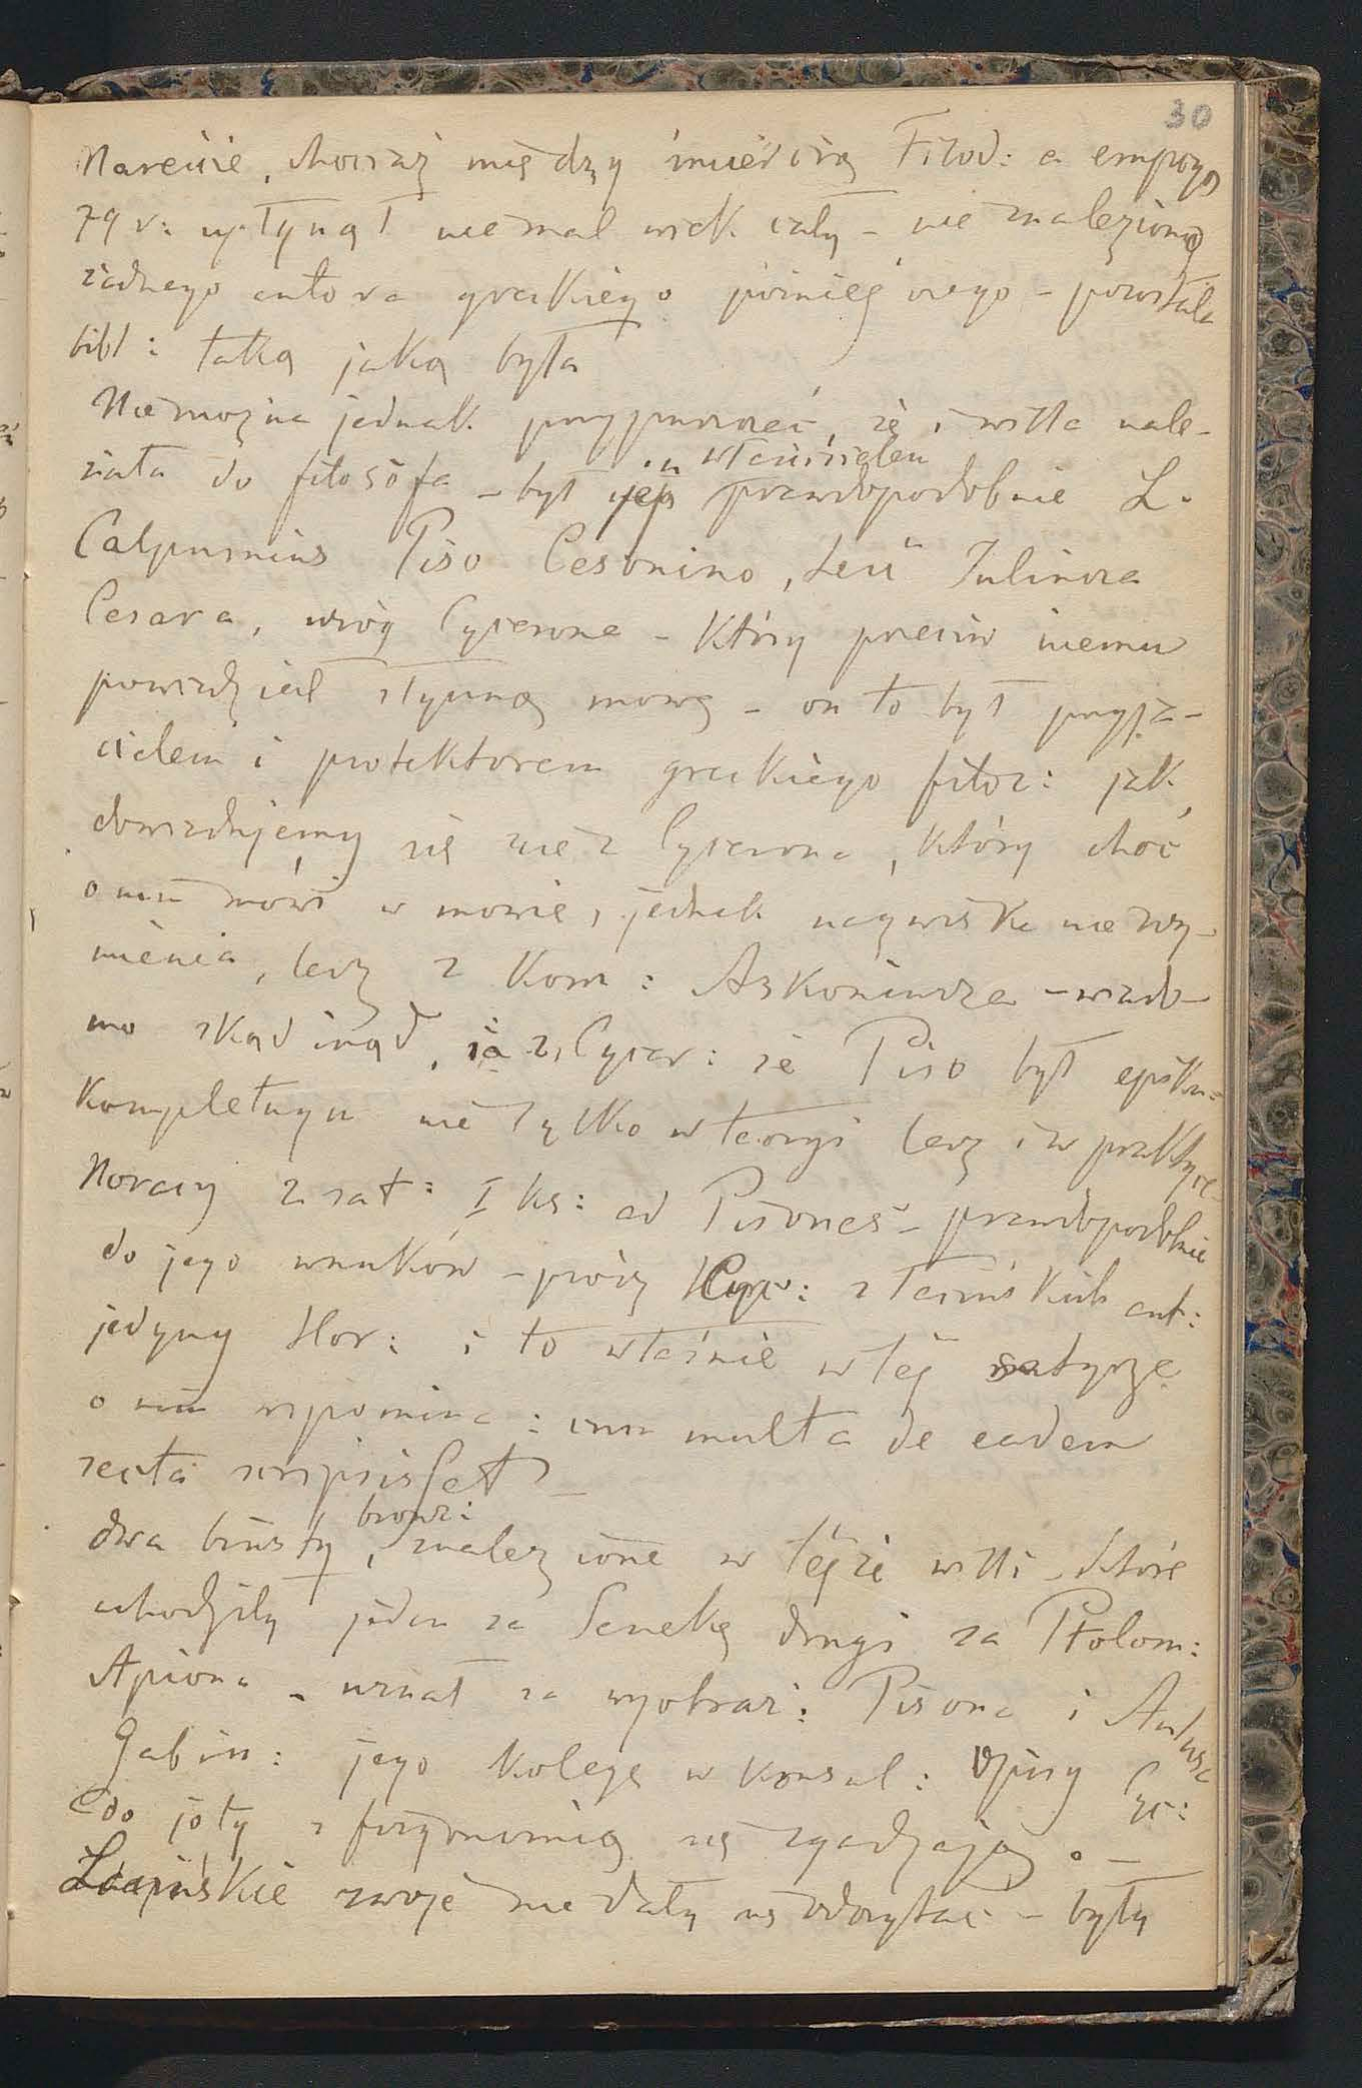 30
Nareście, chociaż między śmiercią Filod: a erupcyą
79 r: upłynął niemal wiek cały – nie znaleziono
żadnego autora greckiego późniejszego – pozostała
bibl: taką jaką była
Nie można jednak przypuszczać, że i willa nale-
żała do filosofa – był jej właścicielem prawdopodobnie L.
Calpurnius Piso Cesonino, teść Juliusza
Cesara, wróg Cycerona – który przeciw niemu
powiedział słynną mowę – on to był przyja-
cielem i protektorem greckiego filoz: jak
dowiadujemy się nie z Cycerona, który choć
o nim mówi w mowie, jednak nazwiska nie wy-
mienia, lecz z Kom: Askoniusza – wiado-
mo skąd inąd, z Cycer: że Piso był epikur:
kompletnym nie tylko w teoryi lecz i w praktyce
Horacy z sat: I ks: ad Pisones – prawdopodobnie
do jego wnuków – prócz Cyc: z łacińskich aut:
jedyny Hor: i to właśnie w tej satyrze
o nim wspomina: cum multa de eadem
secta scripsisset –
dwa biusty bronz:, znalezione w tejże willi – które
uchodziły jeden za Senekę drugi za Ptolom:
Apiona – uznał za wyobraż: Pisona i Aulusa
Gabin: jego kolegę w konsul: Opisy Cyc:
co do joty z fizyonomią się zgadzają. –
Łacińskie zwoje nie dały się odczytać – były